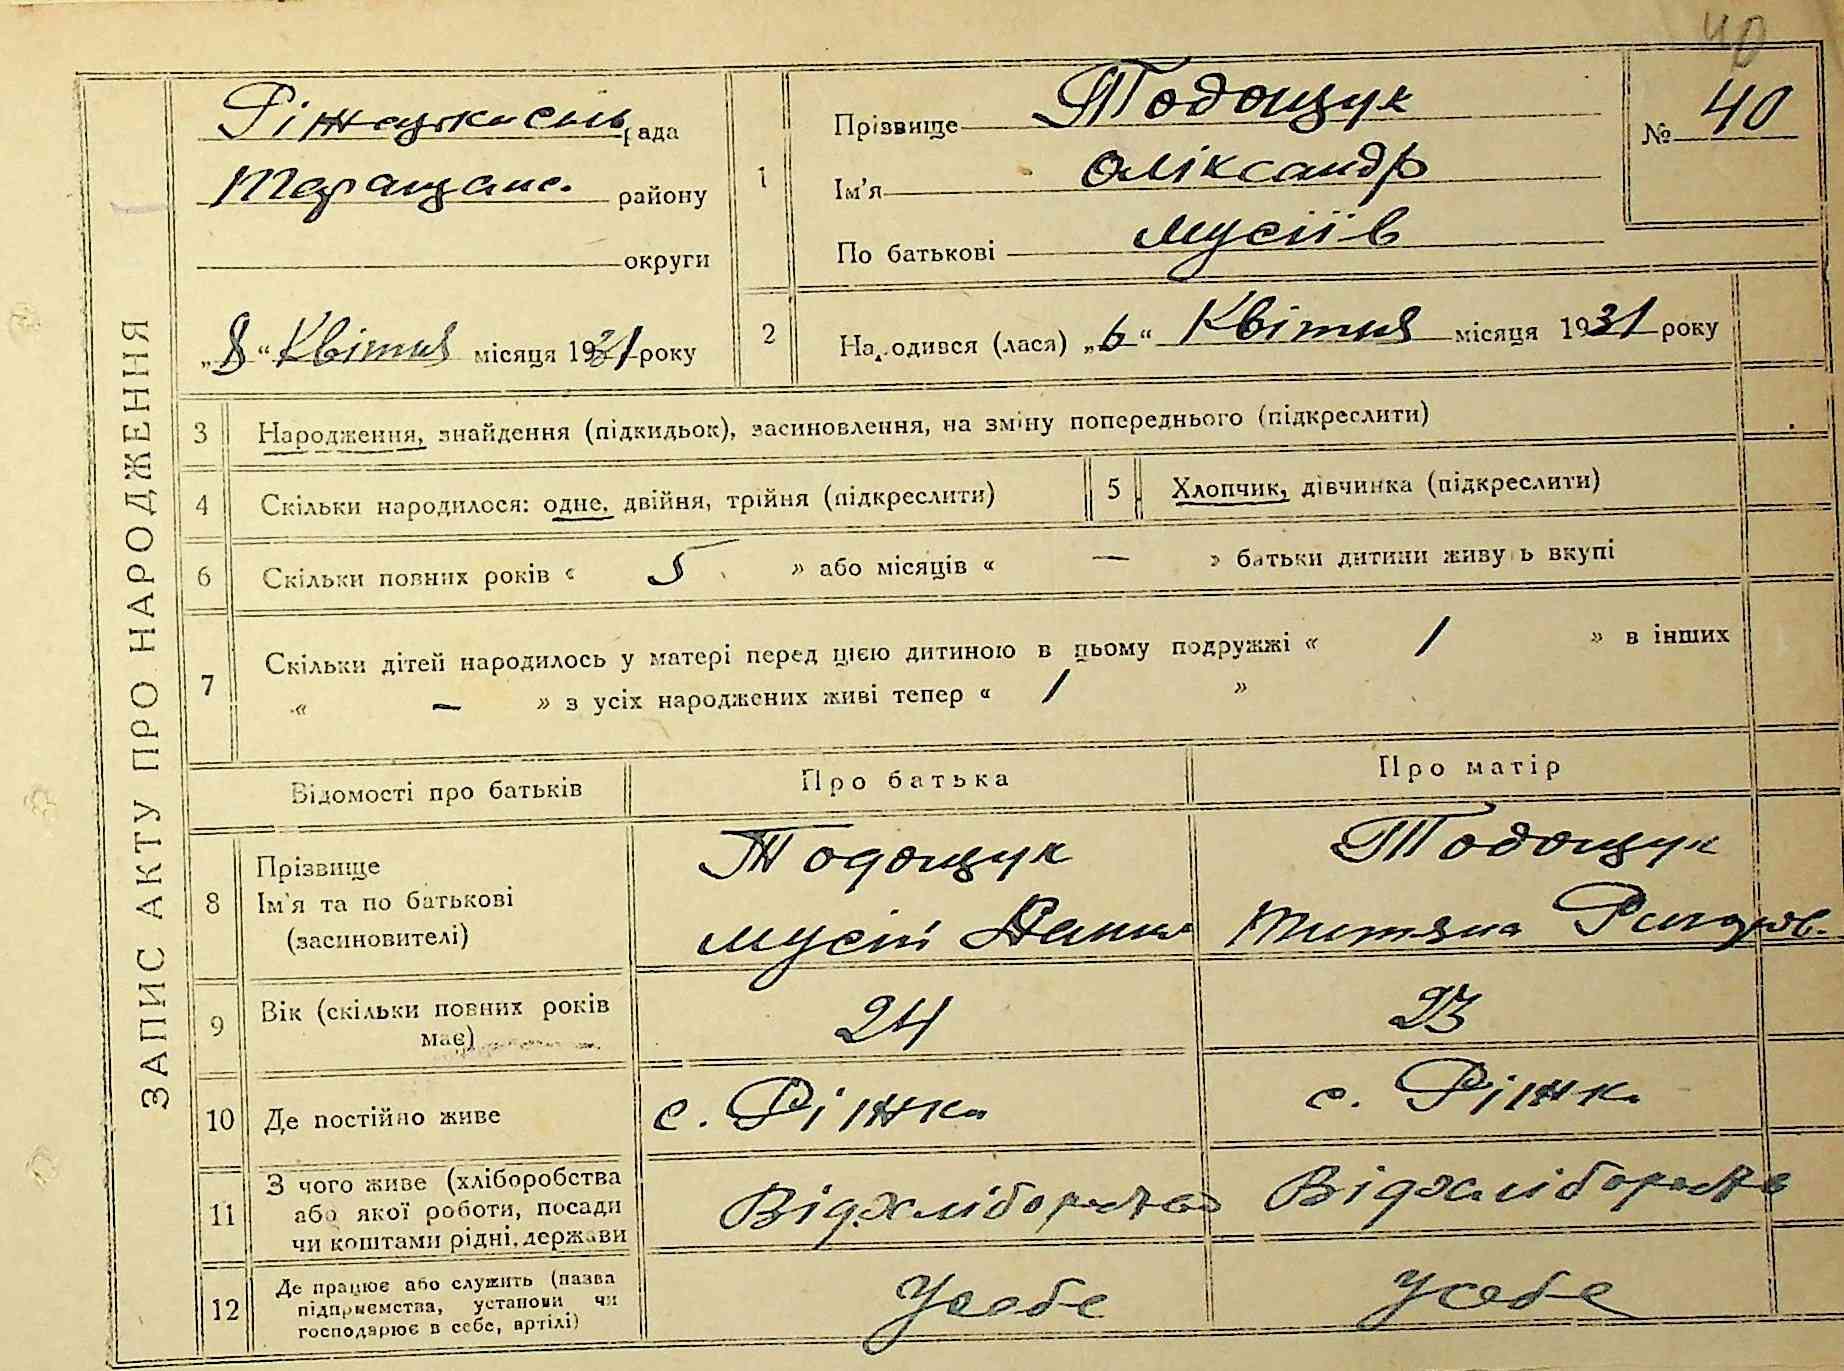 40
ЗАПИС АКТУ ПРО НАРОДЖЕННЯ
рада
Таращанс. району
округи
„8“ Квітня місяця 1931 року
1
Прізвище Тодощук
Ім'я Оліксандр
По батькові Мусіїв
№ 40
2 Народився (лася) „6“ Квітня місяця 1931 року
3 Народження, знайдення (підкидьок), засиновлення, на зміну попереднього (підкреслити)
4 Скільки народилося: одне, двійня, трійня (підкреслити)
5 Хлопчик, дівчинка (підкреслити)
6 Скільки повних років « 5 » або місяців « — » батьки дитини живуть вкупі
7 Скільки дітей народилось у матері перед цією дитиною в цьому подружжі « 1 » в інших
« — » з усіх народжених живі тепер « 1 »
Відомості про батьків Про батька Про матір
8 Прізвище Тодощук Тодощук
Ім'я та по батькові
(засиновителі) Мусій
9 Вік (скільки повних років має) 24 23
10 Де постійно живе с. Ріжки с. Ріжки
11 З чого живе (хліборобства
або якої роботи, посади
чи коштами рідні, держави
Відхліборобства Відхліборобства
12 Де працює або служить (назва
підприємства, установи чи
господарює в себе, артілі)
Усебе Усебе